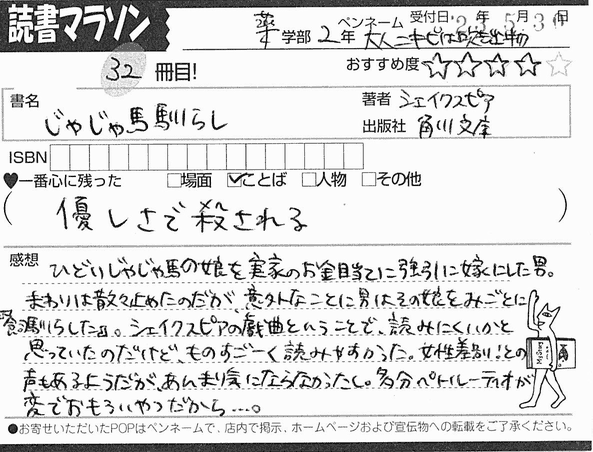 読書マラソン
ペンネーム 受付日 23年5月30日
薬学部2年 大人ニキビは吹き出物
32冊目!
おすすめ度 ☆☆☆☆☆
書名 じゃじゃ馬馴らし
著者 シェイクスピア
出版社 角川文庫
ISBN
♥一番心に残った □場面 ☑ことば □人物 □その他
(優しさで殺される)
感想 ひどいじゃじゃ馬の娘を実家のお金目当てに強引に嫁にした男。
まわりは散々止めたのだが、意外なことに男はその娘をみごとに
馴らした』。シェイクスピアの戯曲ということで、読みにくいかと
思っていたのだけど、ものすごーく読みやすかった。女性差別!との
声もあるようだが、あんまり気にならなかったし。多分ペトルーティオが
変でおもろいやつだから…。
●お寄せいただいたPOPはペンネームで、店内で掲示、ホームページおよび宣伝物への転載をご了承ください。